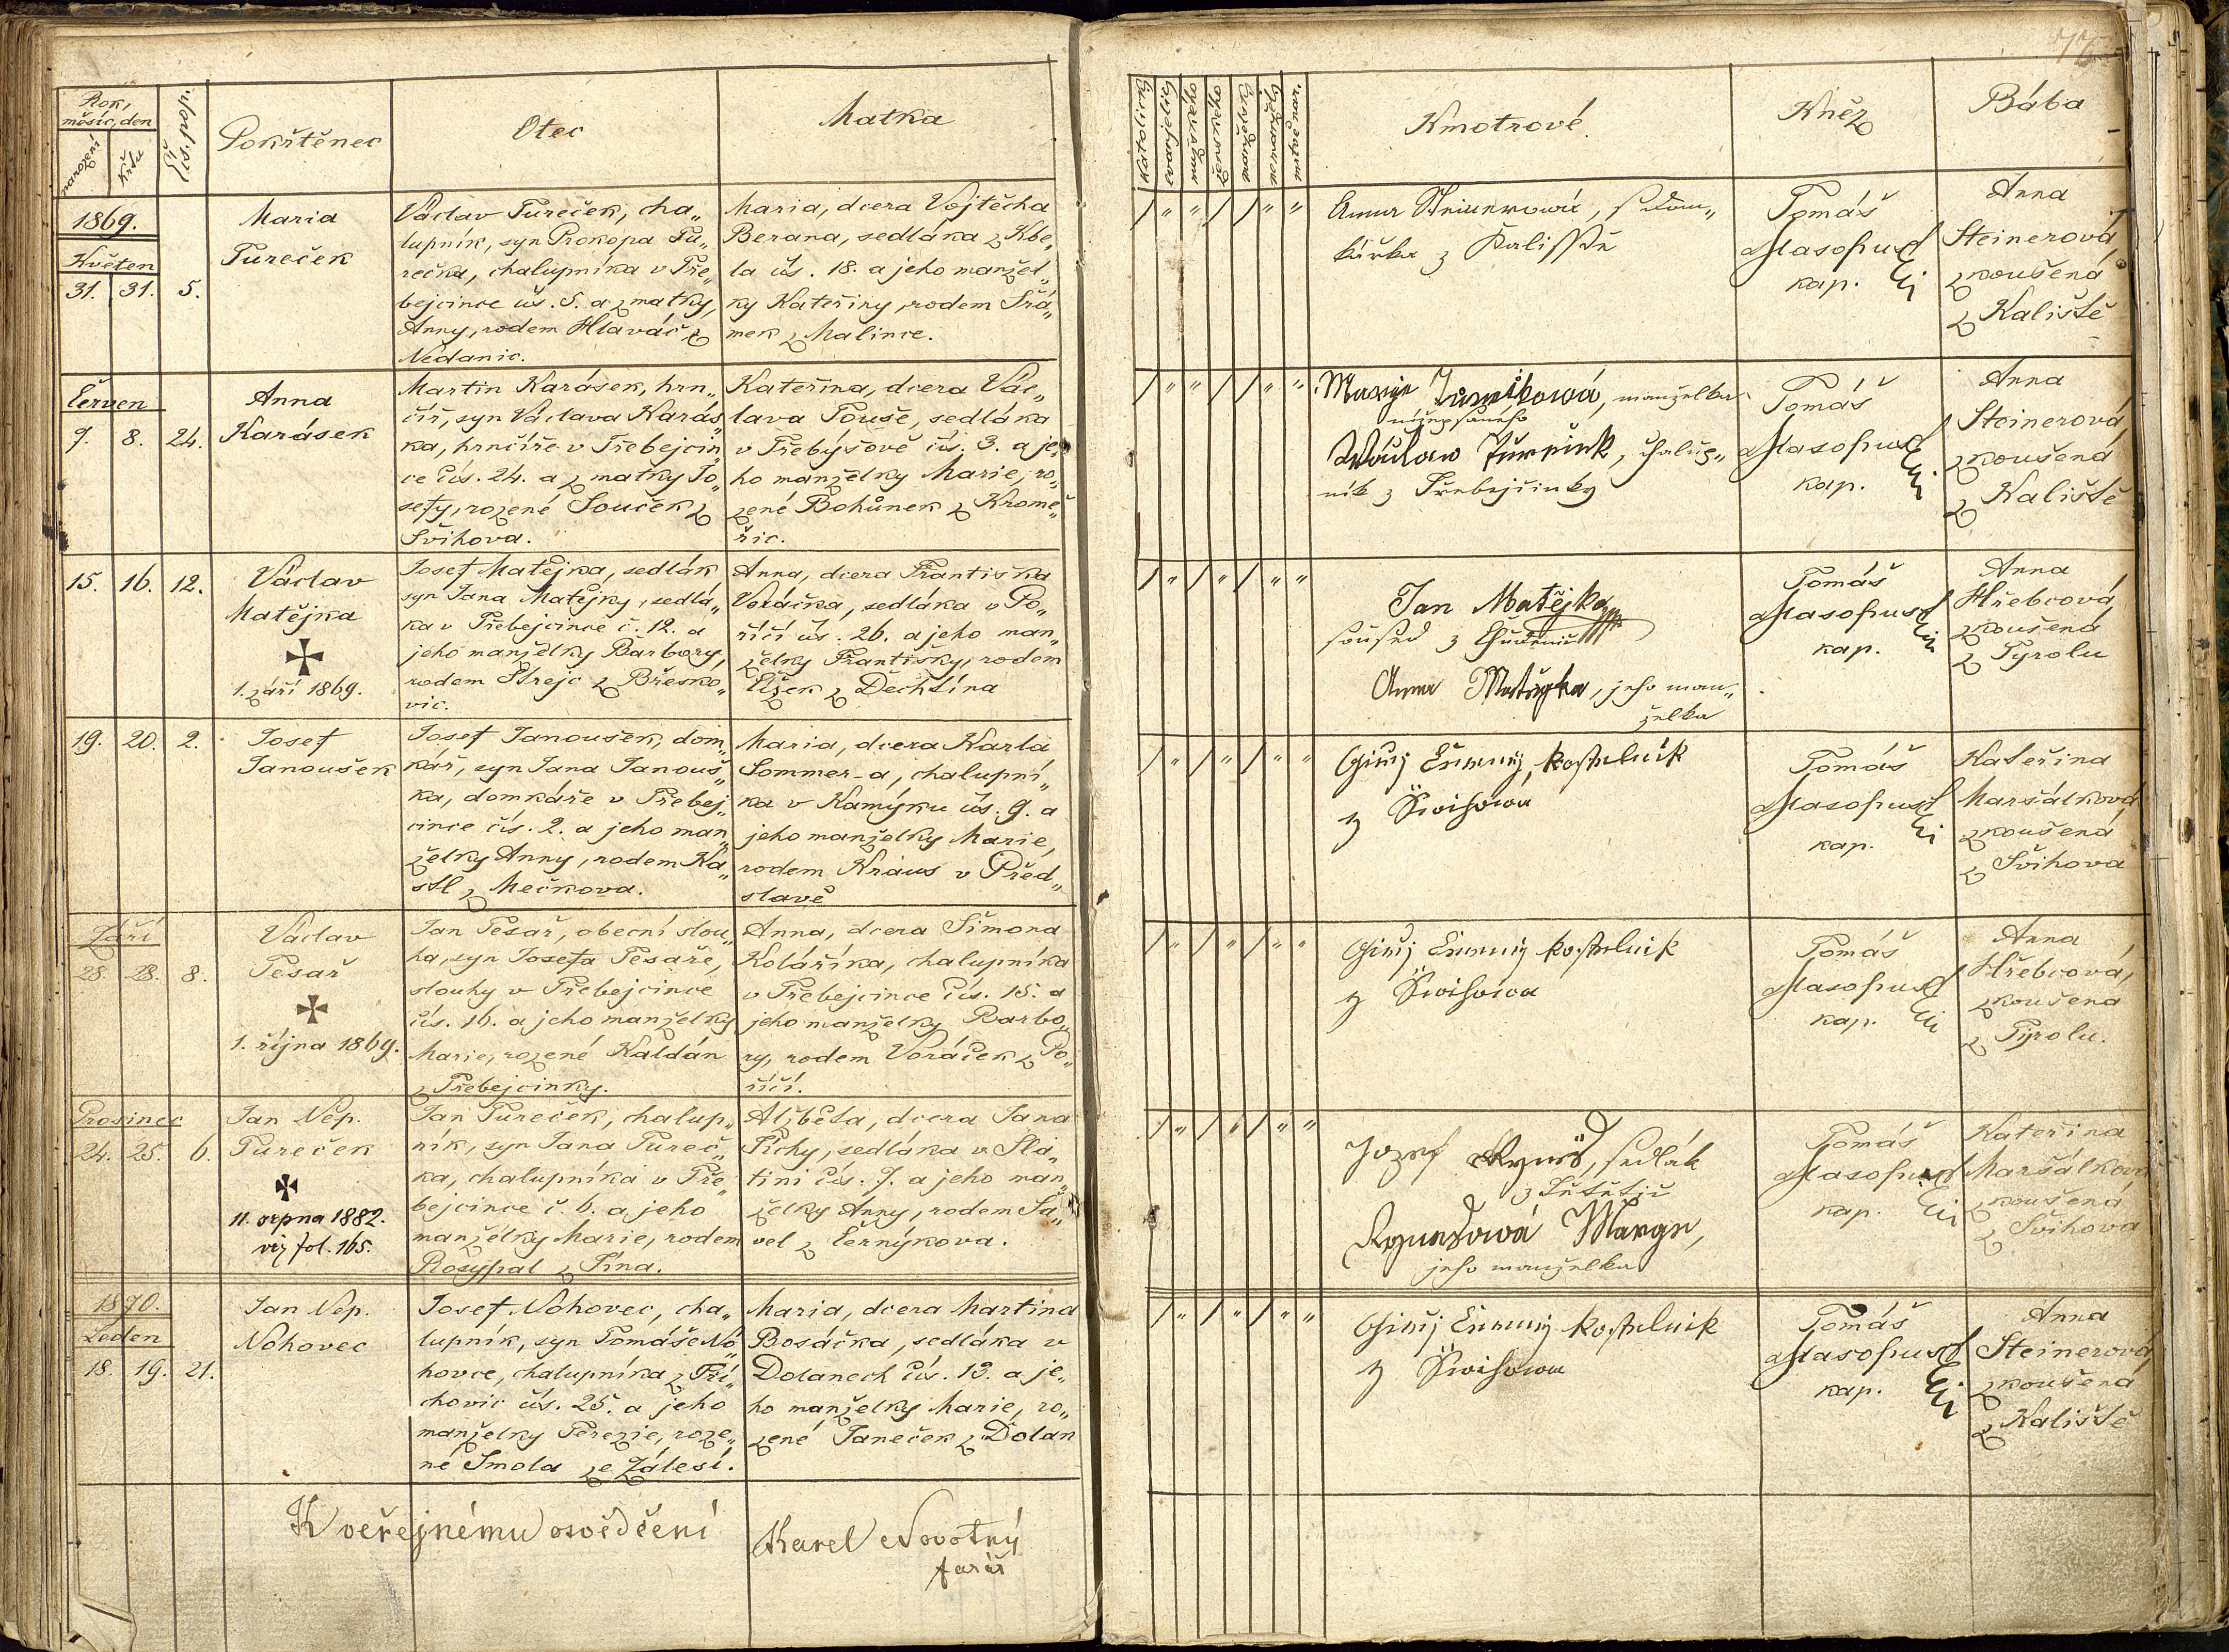 Rok,
měsíc, den
narození
křtu
Čís. pop.
Pokřtěnec
Otec
Matka
1869.
Květen
31. 31. 5.
Maria
Tureček
Václav Tureček, cha„
lupník, syn Prokopa Tu„
rečka, chalupníka v Tře„
bejcince čís. 5. a z matky,
Anny, rodem Hlaváč z
Nedanic.
Maria, dcera Vojtěcha
Berana, sedláka z Kbe„
la čís. 18. a jeho manžel„
ky Kateřiny, rodem Šrá„
mek z Malince.
Červen
7. 8. 24.
Anna
Karásek
Martin Karásek, hrn„
číř, syn Václava Karás„
ka, hrnčíře v Třebejcin„
ce čís. 24. a z matky Jo„
sefy, rozené Souček z
Švihova.
Kateřina, dcera Vác„
lava Touše, sedláka
v Třebýšově čís. 3. a je„
ho manželky Marie, ro„
zené Bohůnek z Krome„
řic.
15. 16. 12.
Václav
Matějka
1. září 1869.
Josef Matějka, sedlák
syn Jana Matějky, sedlá„
ka v Třebejcince č. 12. a
jeho manželky Barbory,
rodem Strejc z Břesko„
vic.
Anna, dcera Františka
Voráčka, sedláka v Po„
říčí čís. 26. a jeho man„
želky Františky, rodem
Èížek z Dechtína
19. 20. 2.
Josef
Janoušek
Josef Janoušek, dom„
kář, syn Jana Janouš„
ka, domkáře v Třebej„
cince čís. 2. a jeho man„
želky Anny, rodem Ka„
stl z Mečkova.
Maria, dcera Karla
Sommer-a, chalupní„
ka v Kamýku čís. 9. a
jeho manželky Marie,
rodem Kraus v Před„
slavě
Září
28. 28. 8.
Václav
Tesař
1. října 1869.
Jan Tesař, obecní slou„
ha, syn Josefa Tesaře,
slouhy v Třebejcince
čís. 16. a jeho manželky
Marie, rozené Kaldán
z Třebejcinky.
Anna, dcera Šimona
Kolářika, chalupníka
v Třebejcince čís. 15. a
jeho manželky Barbo„
ry, rodem Voráček z Po„
říčí.
Prosinec
24. 25. 6.
Jan Nep.
Tureček
11. srpna 1882.
viz fol. 165.
Jan Tureček, chalup„
ník, syn Jana Tureč„
ka, chalupníka v Tře„
bejcince č. 6. a jeho
manželky Marie, rodem
Rosypal z Týna.
Alžběta, dcera Jana
Tichy, sedláka v Sla„
tini čís. 7. a jeho man„
želky Anny, rodem Sa„
vel z Černýkova.
1870.
Leden
18. 19. 21.
Jan Nep.
Nohovec
Josef Nohovec, cha„
lupník, syn Tomáše No„
hovce, chalupníka z Tří„
chovic čís. 25. a jeho
manželky Terezie, roze„
né Smola ze Zálesí.
Maria, dcera Martina
Bosáčka, sedláka v
Dolanech čís. 13. a je„
ho manželky Marie, ro„
zené Janeček z Dolan
K veřejnému osvědčení
Karel Novotný
farář
Katolický
evanjelický
mužského
ženského
manželský
nemanželský
mrtvě nar.
Kmotrové.
Kněz
Bába
Anna Steinerowá,
z Kalisstě
Tomáš
Masopust
kap.
Anna
Steinerová,
zkoušená
z Kaliště
Marye Turečkowá, manželka
nížepsaného
Wáclaw Tureček, chalup„
ník z Třebejčinky
Tomáš
Masopust
kap.
Anna
Steinerová,
zkoušená
z Kaliště
Jan Matějka
soused z Chudenic
Anna Matějka, jeho man„
želka
Tomáš
Masopust
kap.
Anna
Hřebcová,
zkoušená
z Tyrolu
Giřj kostelník
z Šwihowa
Tomáš
Masopust
kap.
Kateřina
Maršálková,
zkoušená
z Švihova
Giřj kostelnik
z Šwihowa
Tomáš
Masopust
kap.
Anna
Hřebcová,
zkoušená
z Tyrolu.
Jozef sedlák
Marye,
jeho manželka
Tomáš
Masopust
kap.
Kateřina
Maršálková
zkoušená
z Švihova
Giřj kostelnik
z Šwihowa
Tomáš
Masopust
kap.
Anna
Steinerová,
zkoušená
z Kaliště